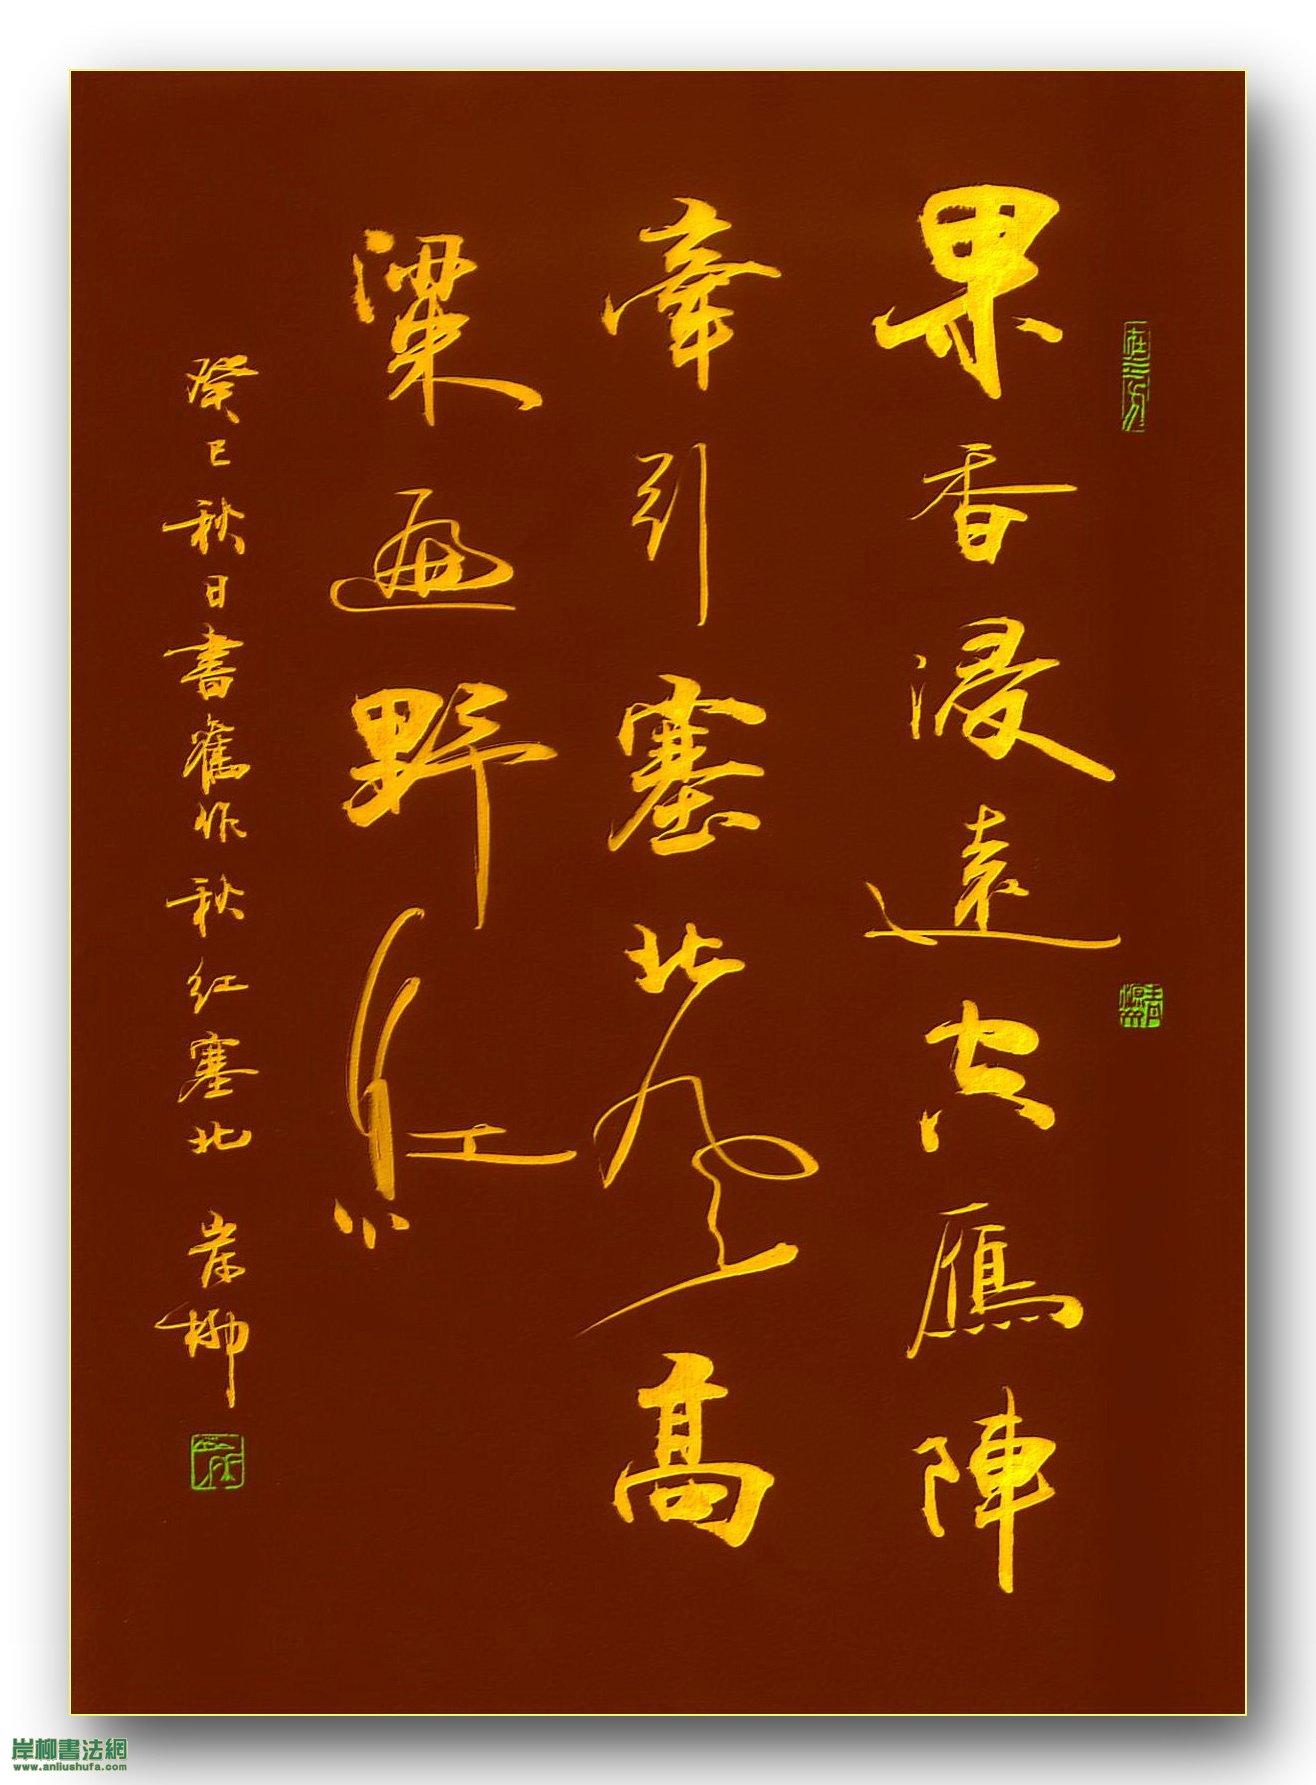 果香浸遠空雁陣
牽引塞北風高
粱遍野紅
癸巳秋日書舊作秋紅塞北 岸柳
岸柳書法網
www.anliushufa.com